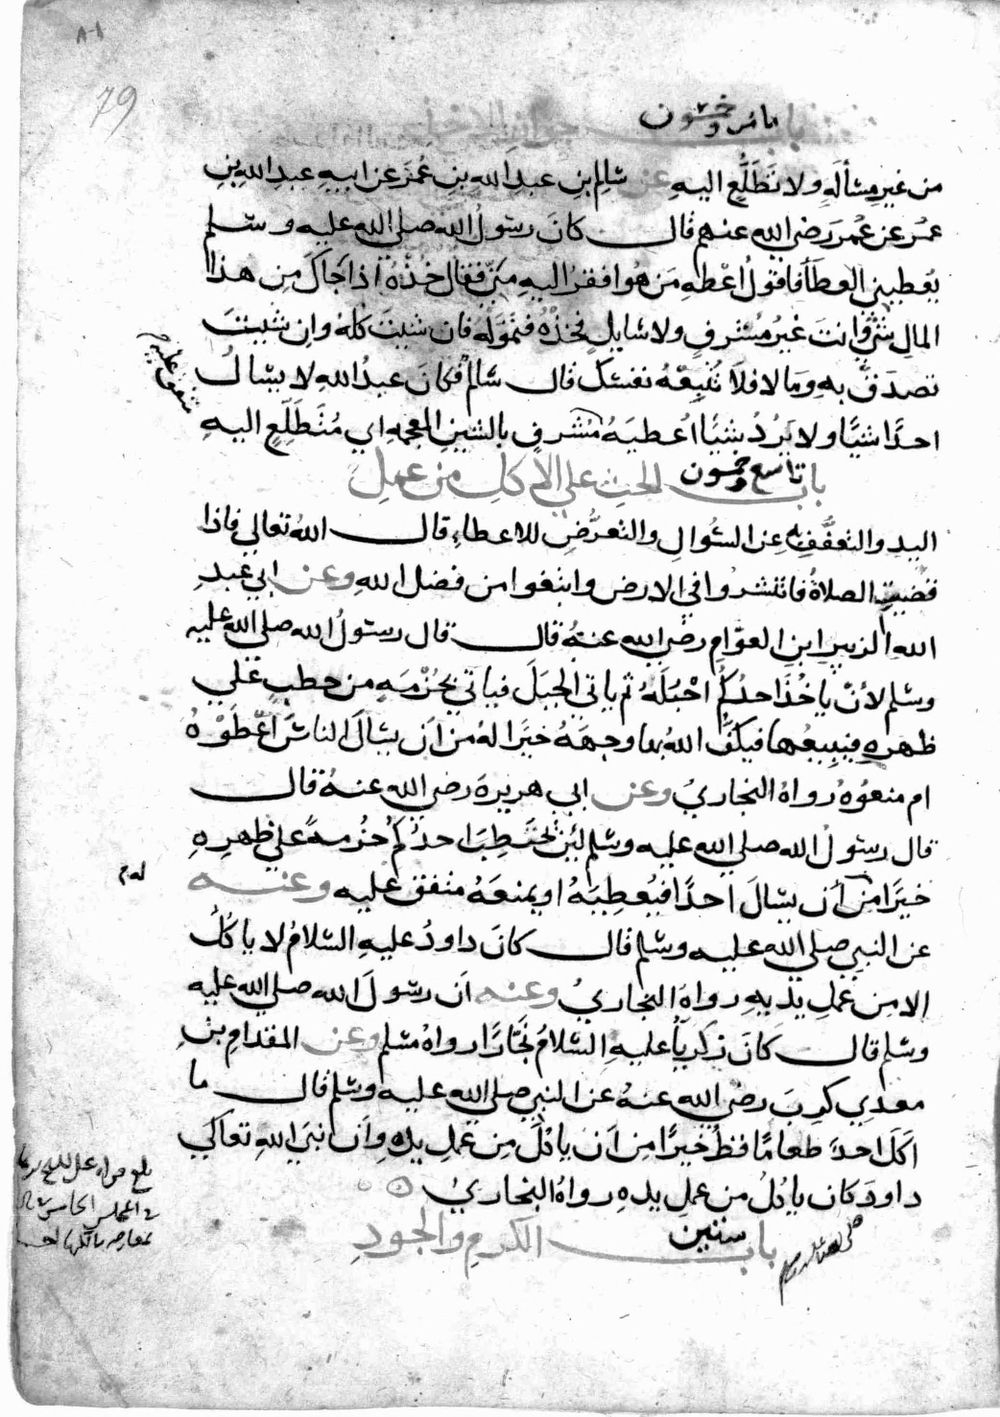 79
باب ثامن وخمسون جواز الاخذ
من غير مسألة ولا تَطَلُّعٍ اليهِ عن سَالِم بنِ عبدِ اللهِ بنِ عُمَرَ عن ابيهِ عبدِ اللهِ بنِ
عمَر عن عُمَر رَضي الله عنهم قال كانَ رسَولُ اللهُ صلي الله عليه وسَلم
يُعطيني العطاَ فاقولُ اعْطهِ مَن هُو افقرُ اليهِ مني فقال خذهُ اذا جَاكَ مِن هذا
المال شئ وانتَ غيرُ مُشرفٍ ولا سَايلٍ فخذْهُ فتموَّلهُ فان شيتَ كلهُ وان شيتَ
تصدَّقْ بهِ ومَا لا فلاَ تُتبعْهُ نفسَك قال سَالم فكانَ عبدُ اللهِ لا يسَالُ
احدًا شيًا ولا يَرُدُ شيًا اُعطيَهُ مُشرفٍ بالشينِ المعجمه اي مُتَطَلِّعٍ اليهِ
متفق عليه
باب تاسع وخمسون الحث علي الاكلِ من عملِ
اليد والتعفُّفِ بهِ عن السُّوالِ والتعرُّضِ للاعطاءِ قال اللهُ تعالي فاذا
قضيتِ الصلاةُ فانتشروا في الارض وابتغوا من فضل اللهِ وعن ابي عبدِ
اللهِ الزبيرِ ابنِ العوّامِ رضي الله عنهُ قال قال رسولُ الله صلى الله عليه
وسَلم لأنْ ياخُذَ احدُكُم احْبُلَهُ ثم ياتي الجبَلَ فياتي بحُزْمَهٍ من حطبٍ على
ظهرهِ فيبيعُها فيكفَّ اللهُ بها وجهَهُ خيرًا لهُ من اَن يسَالَ الناسَ اعْطَوْهُ
ام منعوُهُ رواهُ البخاريُ وعن ابي هريرةَ رضي الله عنهُ قال
قال رسَولُ الله صلي الله عليه وسَلم لئن يحتَطِبَ احدُكُمُ حُزمهً على ظهرهِ
خيرًا من اَن يسَالَ احدًا فيُعطِيَهُ او يمنعَهُ متفق عليه وعنه
عن النبي صلي الله عليه وسَلم قال كانَ داودُ عليهِ السَلامُ لا ياكُلُ
الا من عملِ يديهِ رواهُ البخاريُ وعنه اَن رسَولَ الله صلى الله عليه
وسَلم قال كانَ زكريَّا عليهِ السَلامُ نجَّارًا رواهُ مسَلم وعن المقدامِ بنِ
معدي كربَ رضي الله عنهُ عن النبي صلي الله عليه وسَلم قال ما
اَكَلَ احدٌ طعامًا قطُ خيرًا من اَن ياكُلَ مِن عملِ يدهِ وان نبيَ اللهِ تعالي
داودَ كان ياكُلُ من عملِ يدهِ رواهُ البخاريُ
باب ستين الكرمِ والجودِ